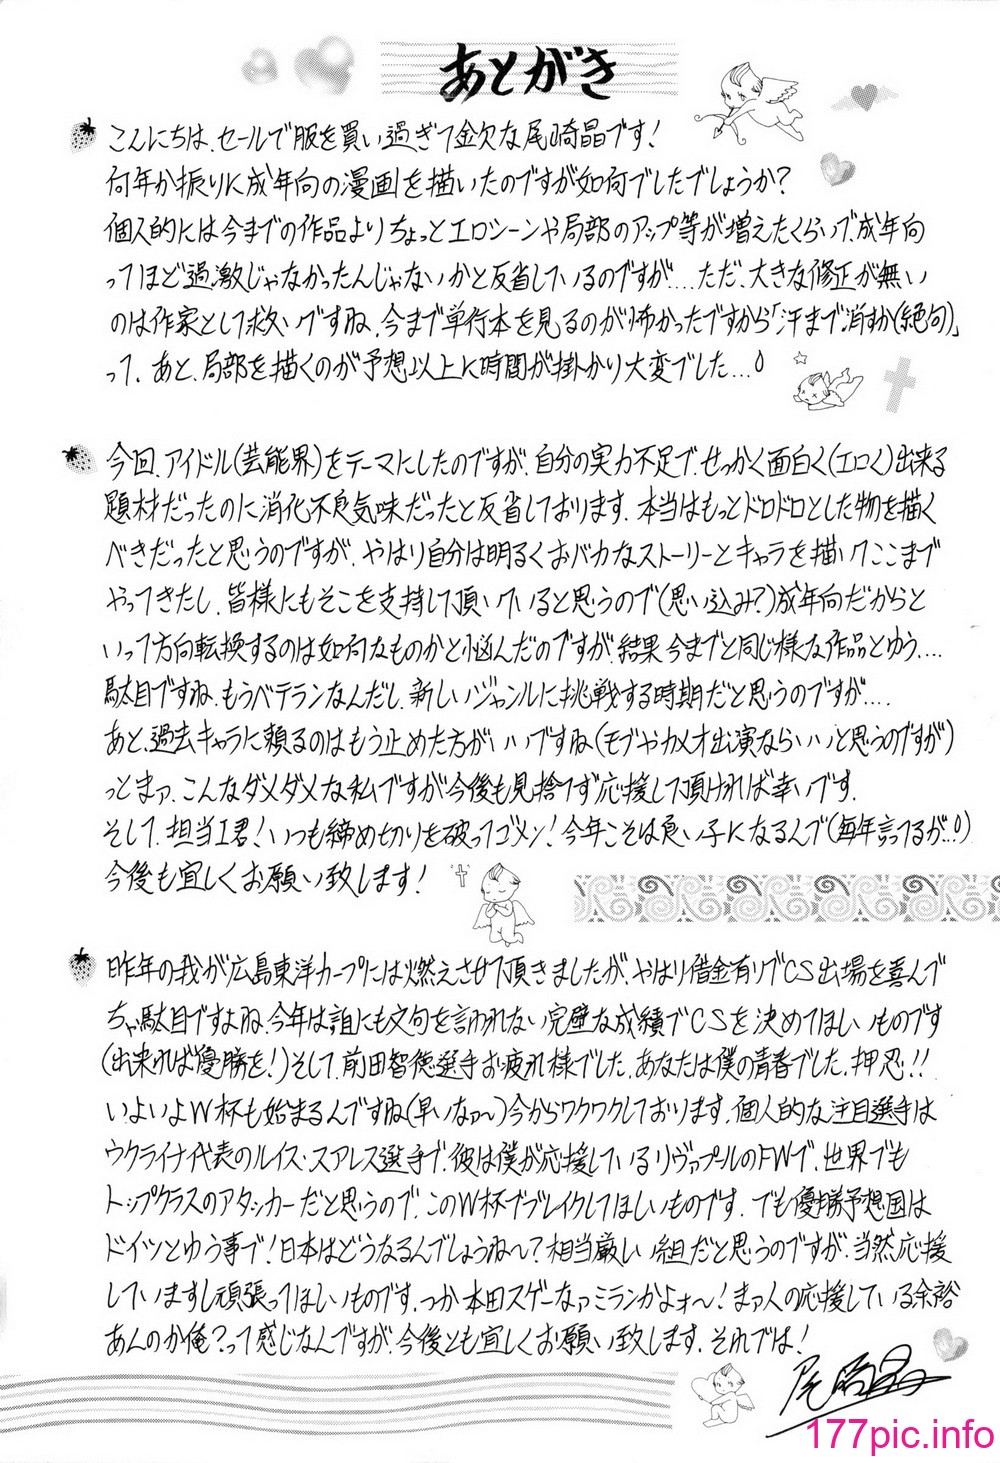 あとがき
こんにちは、セールで服を買い過ぎて金欠な尾崎晶です!
何年か振りに成年向の漫画を描いたのですが如何でしたでしょうか?
個人的には今までの作品よりちょっとエロシーンや局部のアップ等が増えたくらいで、成年向
ってほど過激じゃなかったんじゃないかと反省しているのですが....ただ、大きな修正が無い
のは作家として救いですね、今まで単行本を見るのが怖かったですから「汁まで消すか(絶句)」
って、あと、局部を描くのが予想以上に時間が掛かり大変でした...
今回、アイドル(芸能界)をテーマにしたのですが、自分の実力不足で、せっかく面白く(エロく)出来る
題材だったのに消化不良気味だったと反省しております、本当はもっとドロドロとした物を描く
べきだったと思うのですが、やはり自分は明るくおバカなストーリーとキャラを描いてここまで
やってきたし、皆様にもそこを支持して頂いていると思うので(思い込み?)成年向だからと
いって方向転換するのは如何なものかと悩んだのですが、結果今までと同じ様な作品とゆう....
駄目ですね、もうベテランなんだし、新しいジャンルに挑戦する時期だと思うのですが....
あと、過去キャラに頼るのはもう止めた方がいいですね(モブやカメオ出演ならいいと思うのですが)
っとまァ、こんなダメダメな私ですが今後も見捨てず応援して頂ければ幸いです.
そして、担当I君!いつも締め切りを破ってゴメン!今年こそは良い子になるんで(毎年言ってるが..!)
今後も宜しくお願い致します!
昨年の我が広島東洋カープには燃えさせて頂きましたが、やはり借金有りでCS出場を喜んで
ちゃ駄目ですよね、今年は誰にも文句を言われない完璧な成績でCSを決めてほしいものです
(出来れば優勝を!)そして、前田智徳選手お疲れ様でした、あなたは僕の青春でした、押忍!!
いよいよW杯も始まるんですね(早いなァ〜)今からワクワクしております、個人的な注目選手は
ウクライナ代表のルイス・スアレス選手で、彼は僕が応援しているリヴァプールのFWで、世界でも
トップクラスのアタッカーだと思うので、このW杯でブレイクしてほしいものです、でも優勝予想国は
ドイツとゆう事で!日本はどうなるんでしょうね〜?相当厳しい組だと思うのですが、当然応援
していますし頑張ってほしいものです、つか本田スゲーなァミランかよォ〜!まァ人の応援している余裕
あんのか俺?って感じなんですが、今後とも宜しくお願い致します、それでは!
尾崎晶
177pic.info